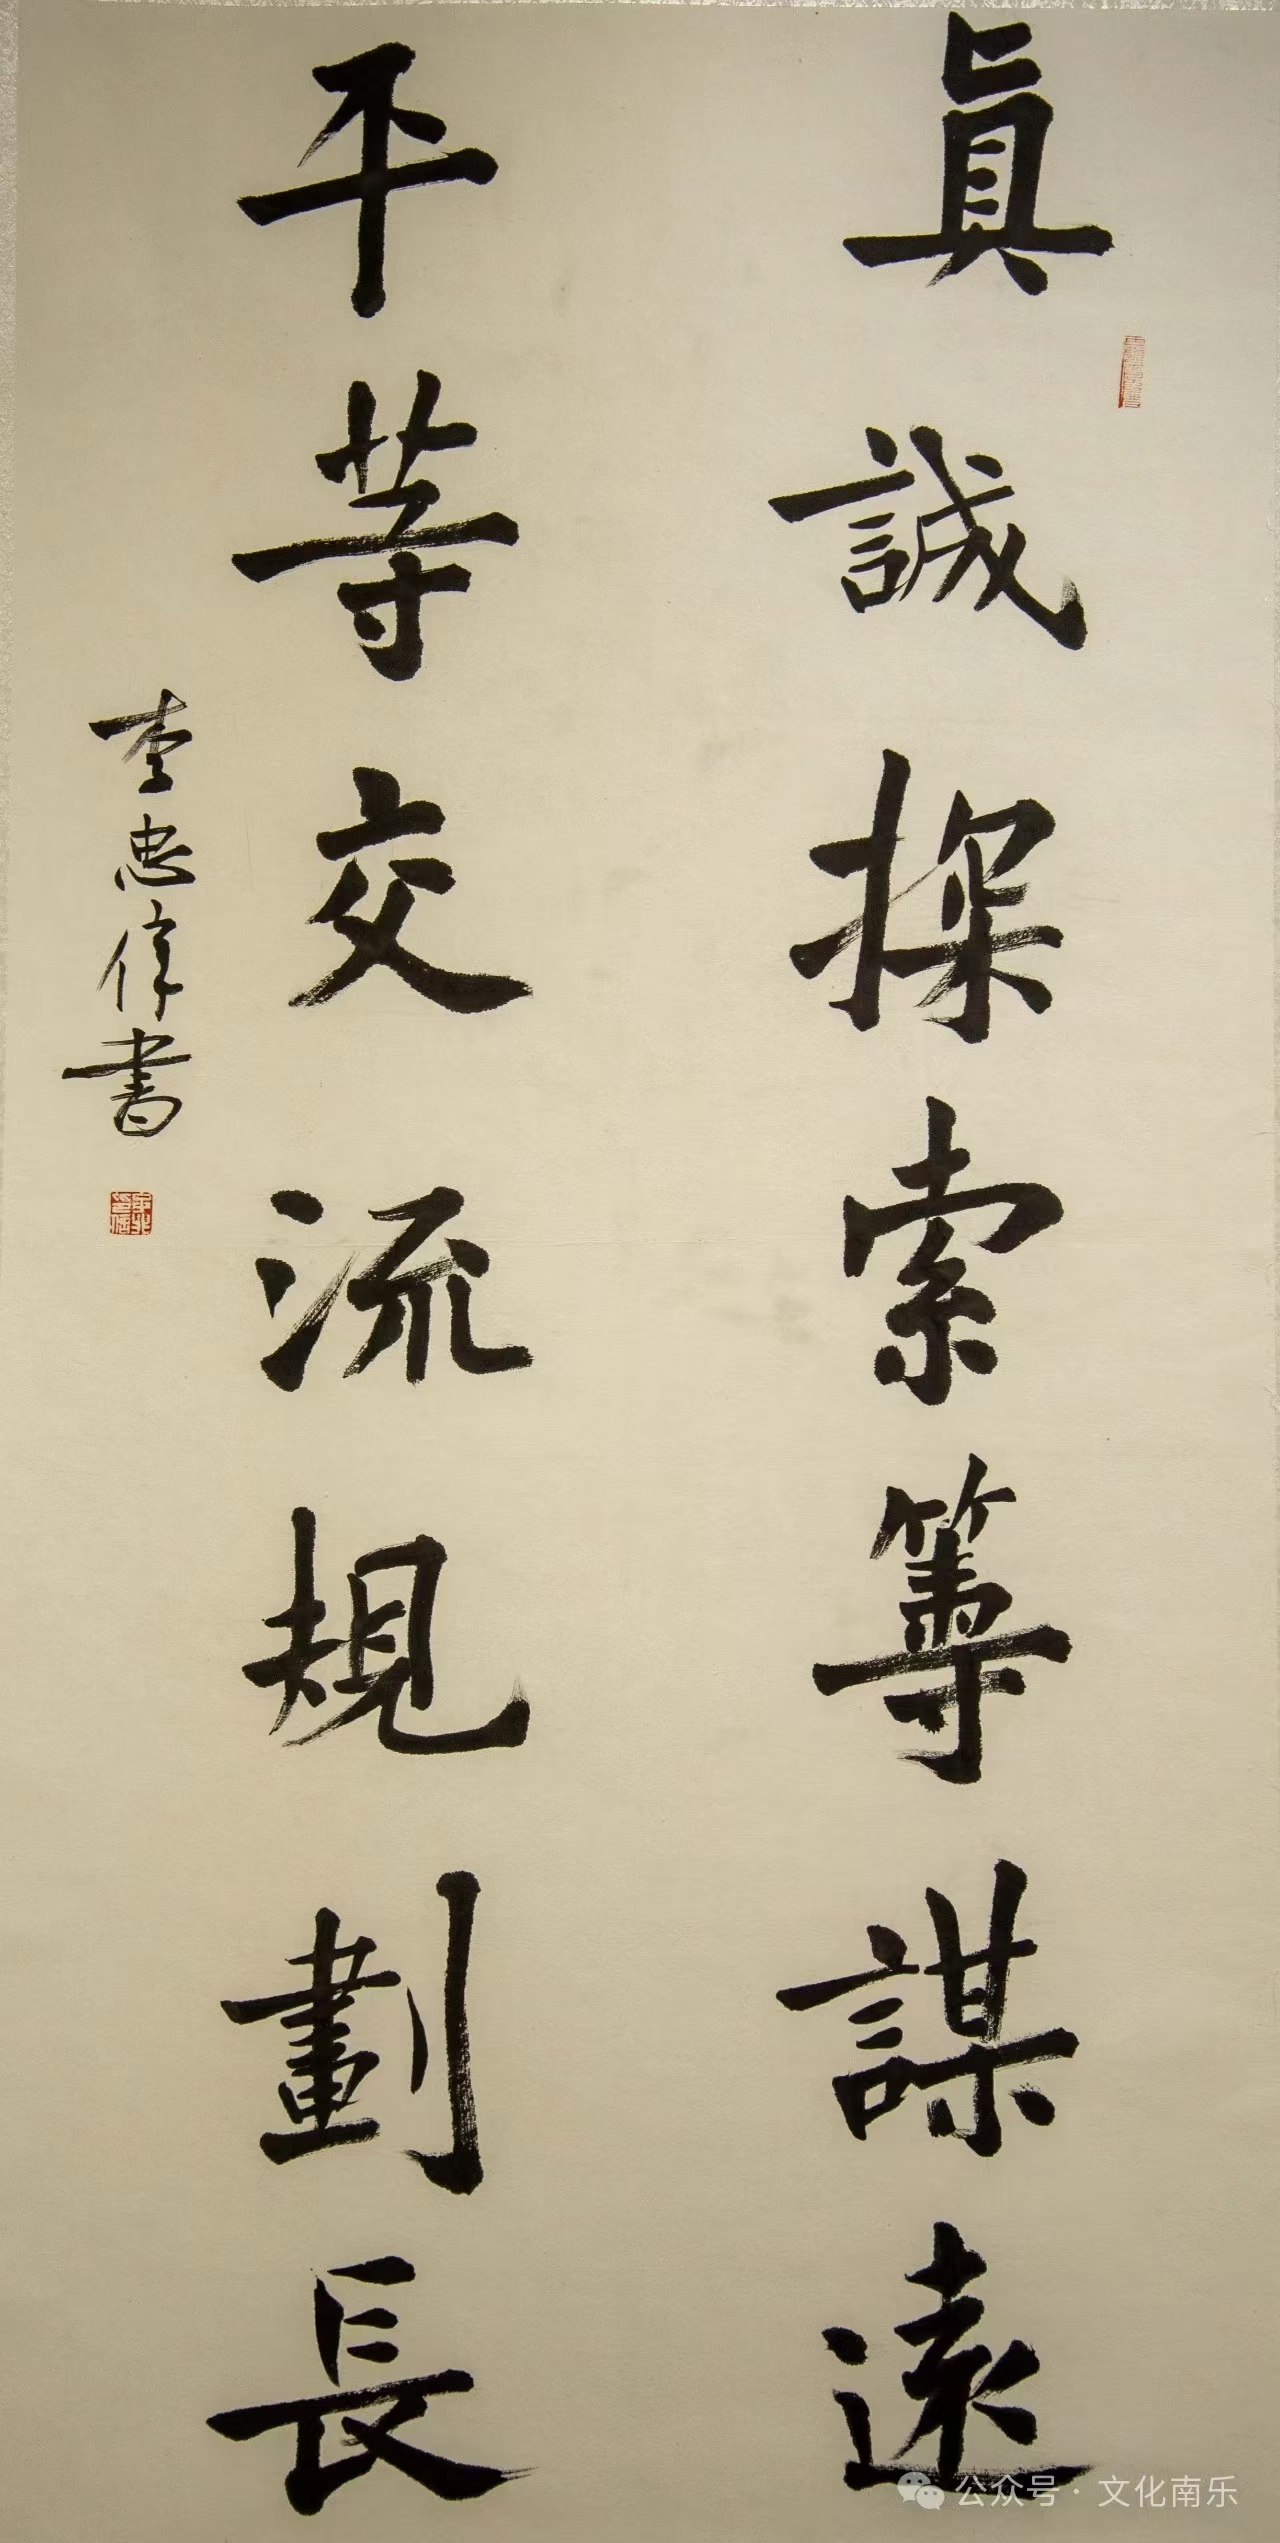 真誠探索籌謀遠
平等交流規劃長
李忠偉書
公众号·文化南乐